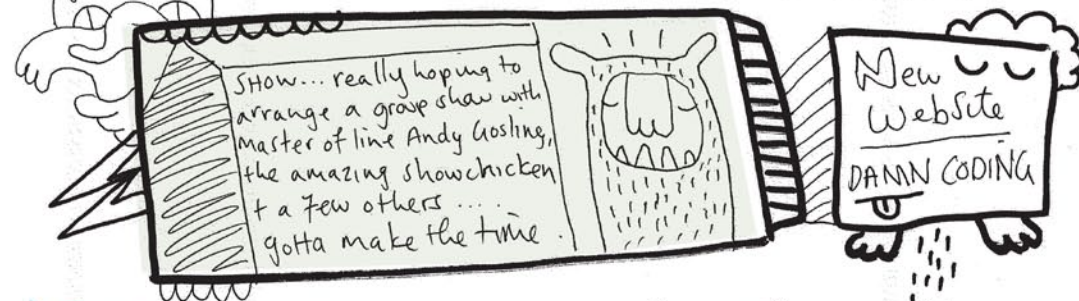 SHOW... really hoping to
arrange a group show with
master of line Andy Gosling,
the amazing showchicken
+ a few others ....
gotta make the time.
New
Website
DAMN CODING